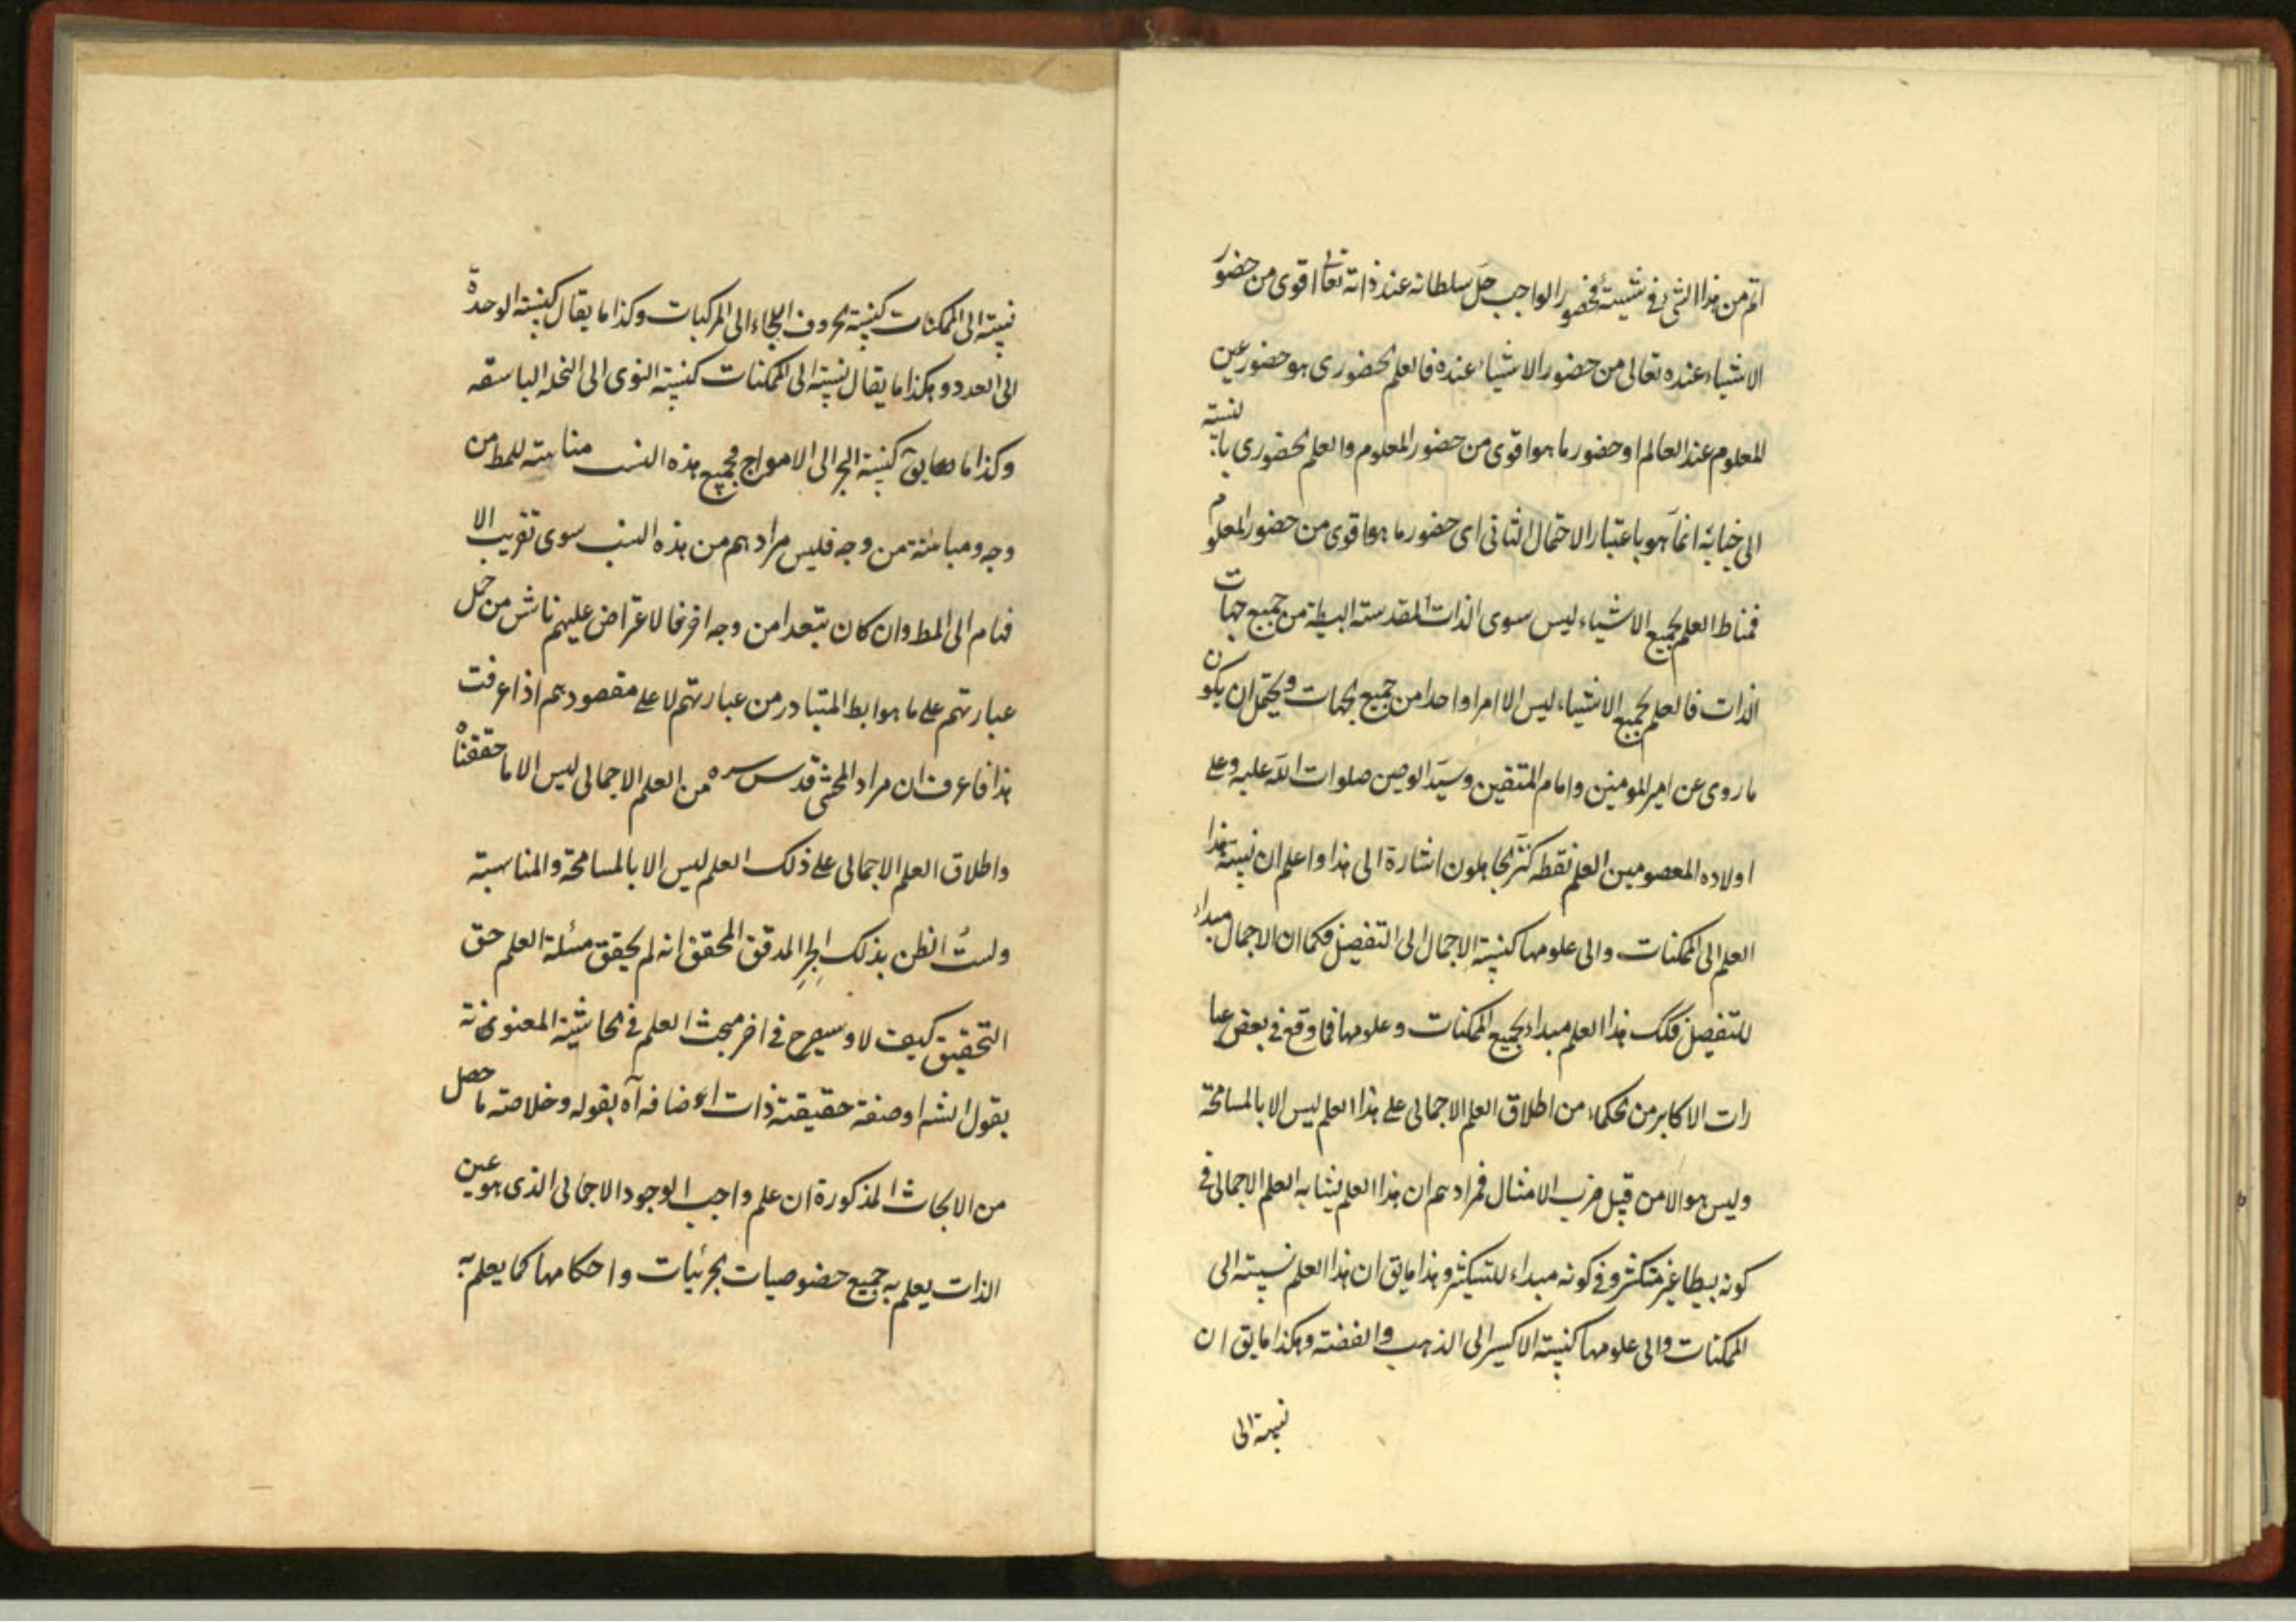 اتم من هذا الشئ فى شيئيته فحضور الواجب جل سلطانه عند ذاته تعالى اقوى من حضور
الاشياء عنده تعالى من حضور الاشياء عنده فالعلم الحضورى هو حضور عين
المعلوم عند العالم او حضور ما هو اقوى من حضور المعلوم والعلم الحضورى بالنسبته
الى جنابه انما هو باعتبار الاحتمال الثانى اى حضور ما هو اقوى من حضور المعلوم
فمناط العلم بجميع الاشياء ليس سوى الذات المقدسته البسيطة من جميع جهات
الذات فالعلم بجميع الاشياء ليس الا امرا واحدا من جميع الجهات ويحتمل ان يكون
ما روى عن امير المومنين وامام المتقين وسيد الوصين صلوات الله عليه وعلى
اولاده المعصومين العلم نقطه كثرها الجاهلون اشارة الى هذا واعلم ان نسبته هذا
العلم الى الممكنات والى علومها كنسبته الاجمال الى التفصيل فكما ان الاجمال مبداء
للتفصيل فكك هذا العلم مبداء لجميع الممكنات وعلومها فما وقع فى بعض عبا
رات الاكابر من الحكماء من اطلاق العلم الاجمالى على هذا العلم ليس الا بالمسامحة
وليس هو الا من قبيل ضرب الامثال فمرادهم ان هذا العلم يشابه العلم الاجمالى فى
كونه بسيطا غير متكثر وفى كونه مبداء للتكثر وهذا ما يق ان هذا العلم نسبته الى
الممكنات والى علومها كنسبته الاكسير الى الذهب والفضته وهكذا ما يق ان
نسبته الى
نسبته الى الممكنات كنسبته حروف الهجاء الى المركبات وكذا ما يقال كنسبته الوحدة
الى العدد وهكذا ما يقال نسبته الى الممكنات كنسبته النوى الى النخله الباسقه
وكذا ما يق كنسبته البحر الى الامواج فجميع هذه النسب مناسبته للمط من
وجه ومباينة من وجه فليس مرادهم من هذه النسب سوى تقريب الا
فهام الى المط وان كان تبعدا من وجه اخر فالاعتراض عليهم ناش من حمل
عبارتهم على ما هو المتبادر من عبارتهم لا على مقصودهم اذا عرفت
هذا فاعرف ان مراد المحشى قدس سره من العلم الاجمالى ليس الا ما حققناه
واطلاق العلم الاجمالى على ذلك العلم ليس الا بالمسامحة والمناسبته
ولست اظن بذلك الحبر المدقق المحقق انه لم يحقق مسئلة العلم حق
التحقيق كيف لا وسيصرح فى اخر مبحث العلم فى الحاشية المعنونة
بقول الشه او صفته حقيقته ذات اضافه آه بقوله وخلاصته ما حصل
من الابحاث المذكورة ان علم واجب الوجود الاجمالى الذى هو عين
الذات يعلم به جميع خصوصيات الجزئيات واحكامها كما يعلم به